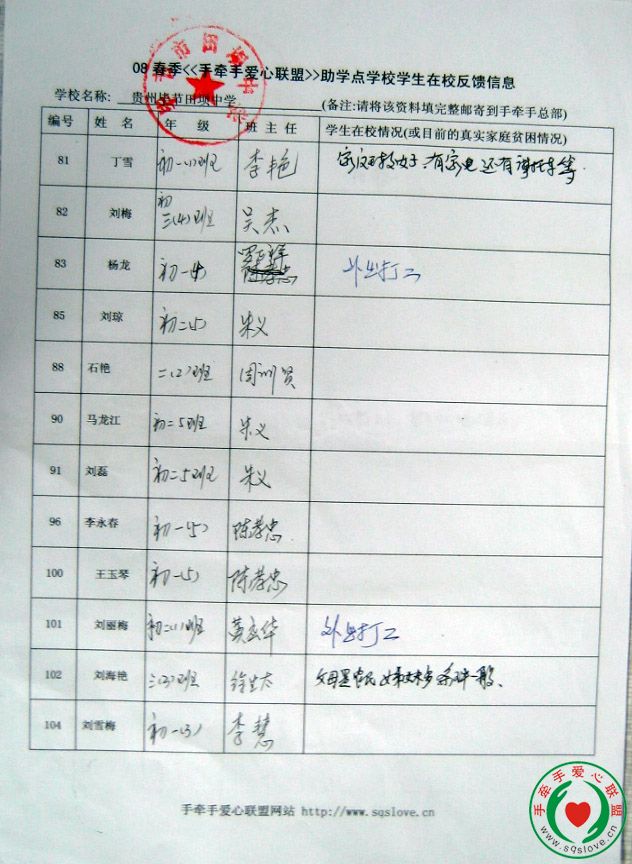 08 春季<<手牵手爱心联盟>>助学点学校学生在校反馈信息
学校名称: 贵州毕节田坝中学 (备注:请将该资料填完整邮寄到手牵手总部)
编号 姓 名 年 级 班 主 任 学生在校情况(或目前的真实家庭贫困情况)
81 丁雪 初一(1)班 李艳
82 刘梅 初三(4)班 吴杰
83 杨龙 初一(4) 外出打工
85 刘琼 初二(5) 朱义
88 石艳 二(2)班 周训贤
90 马龙江 初二5班 朱义
91 刘磊 初二5班 朱义
96 李永春 初一(5) 陈孝忠
100 王玉琴 初一(5) 陈孝忠
101 刘丽梅 初二(1)班 黄应华 外出打工
102 刘海艳 三(3)班 父母是农民 条件一般、
104 刘雪梅 初一(3) 李慧
手牵手爱心联盟网站 http://www.sqslove.cn
手牵手爱心联盟
www.sqslove.cn